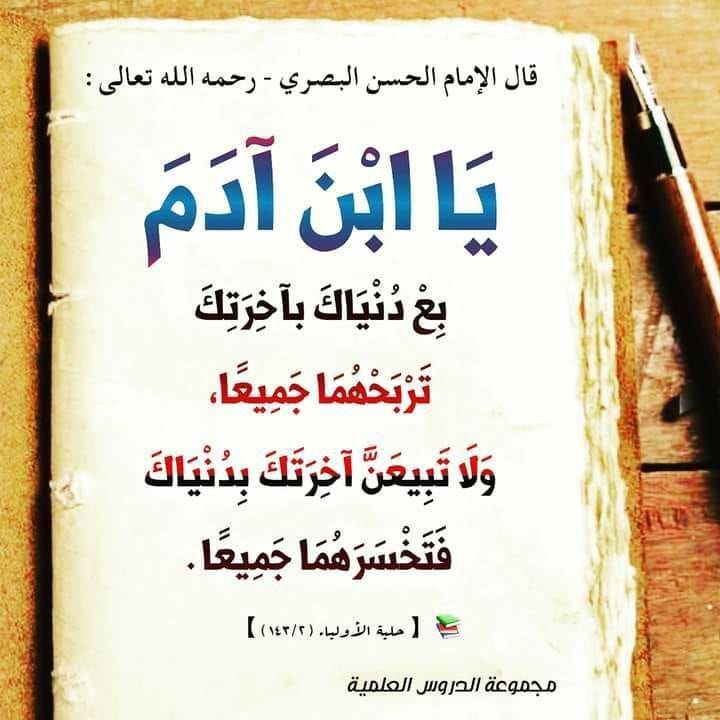 قال الإمام الحسن البصري - رحمه الله تعالى :
يَا ابْنَ آدَمَ
بِعْ دُنْيَاكَ بآخِرَتِكَ
تَرْبَحْهُمَا جَمِيعًا،
وَلَا تَبِيعَنَّ آخِرَتَكَ بِدُنْيَاكَ
فَتَخْسَرَهُمَا جَمِيعًا .
【 حلية الأولياء (١٤٣/٢) 】
مجموعة الدروس العلمية